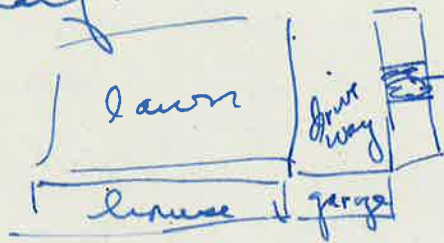 lawn
drive
way
house garage